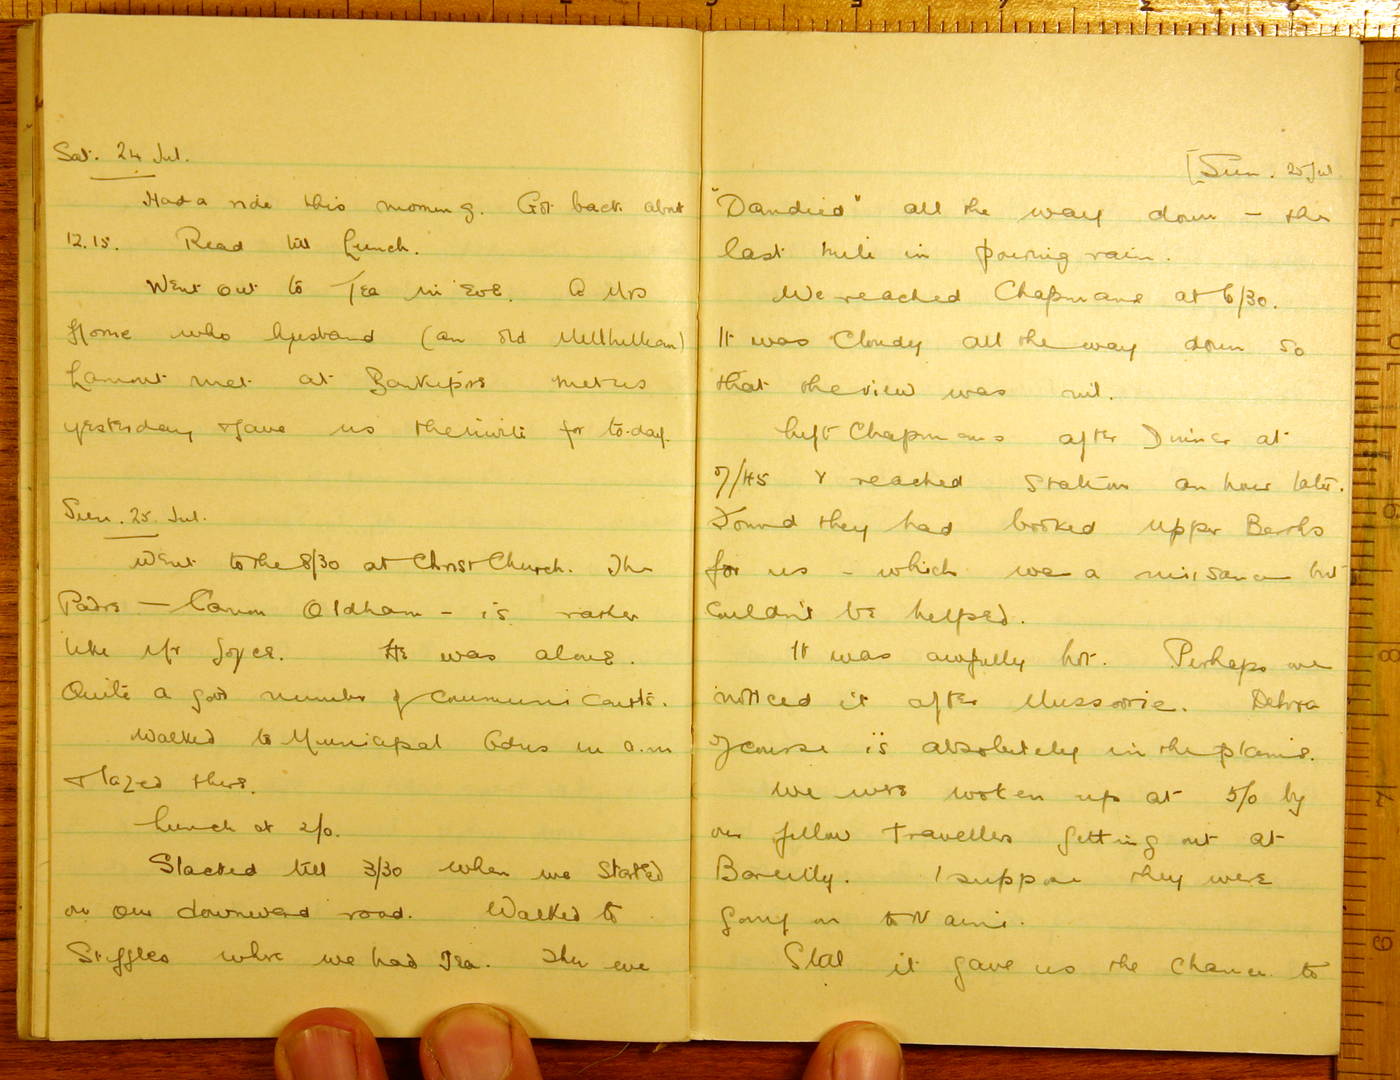 Sat. 24 Jul.
Had a ride this morning. Got back about
12.15. Read till Lunch.
Went out to Tea in Eve. A Mrs
Horne who husband (an old Millhillian)
Lamont met at Bankipore met us
yesterday & gave us the invite for to-day.
Sun. 25. Jul.
Went to the 8/30 at Christ Church. The
Padre — Canon Oldham – is rather
like Mr Joyce. He was alone.
Quite a good number of communicants.
Walked to Municipal Gdns in a.m
& lazed there.
Lunch at 2/0.
Slacked till 3/30 when we started
on our downward road. Walked to
Stiffles where we had Tea. Then we
[Sun. 25 Jul
"Dandied" all the way down – the
last mile in pouring rain.
We reached Chapmans at 6/30.
It was Cloudy all the way down so
that the view was nil.
Left Chapmans after Dinner at
7/45 & reached Station an hour later.
Found they had booked Upper Berths
for us – which was a nuisance but
couldn't be helped.
It was awfully hot. Perhaps we
noticed it after Mussoorie. Dehra
of course is absolutely in the plains.
We were woken up at 5/0 by
our fellow travellers getting out at
Bareilly. I suppose they were
going on to Naini.
Still it gave us the chance to